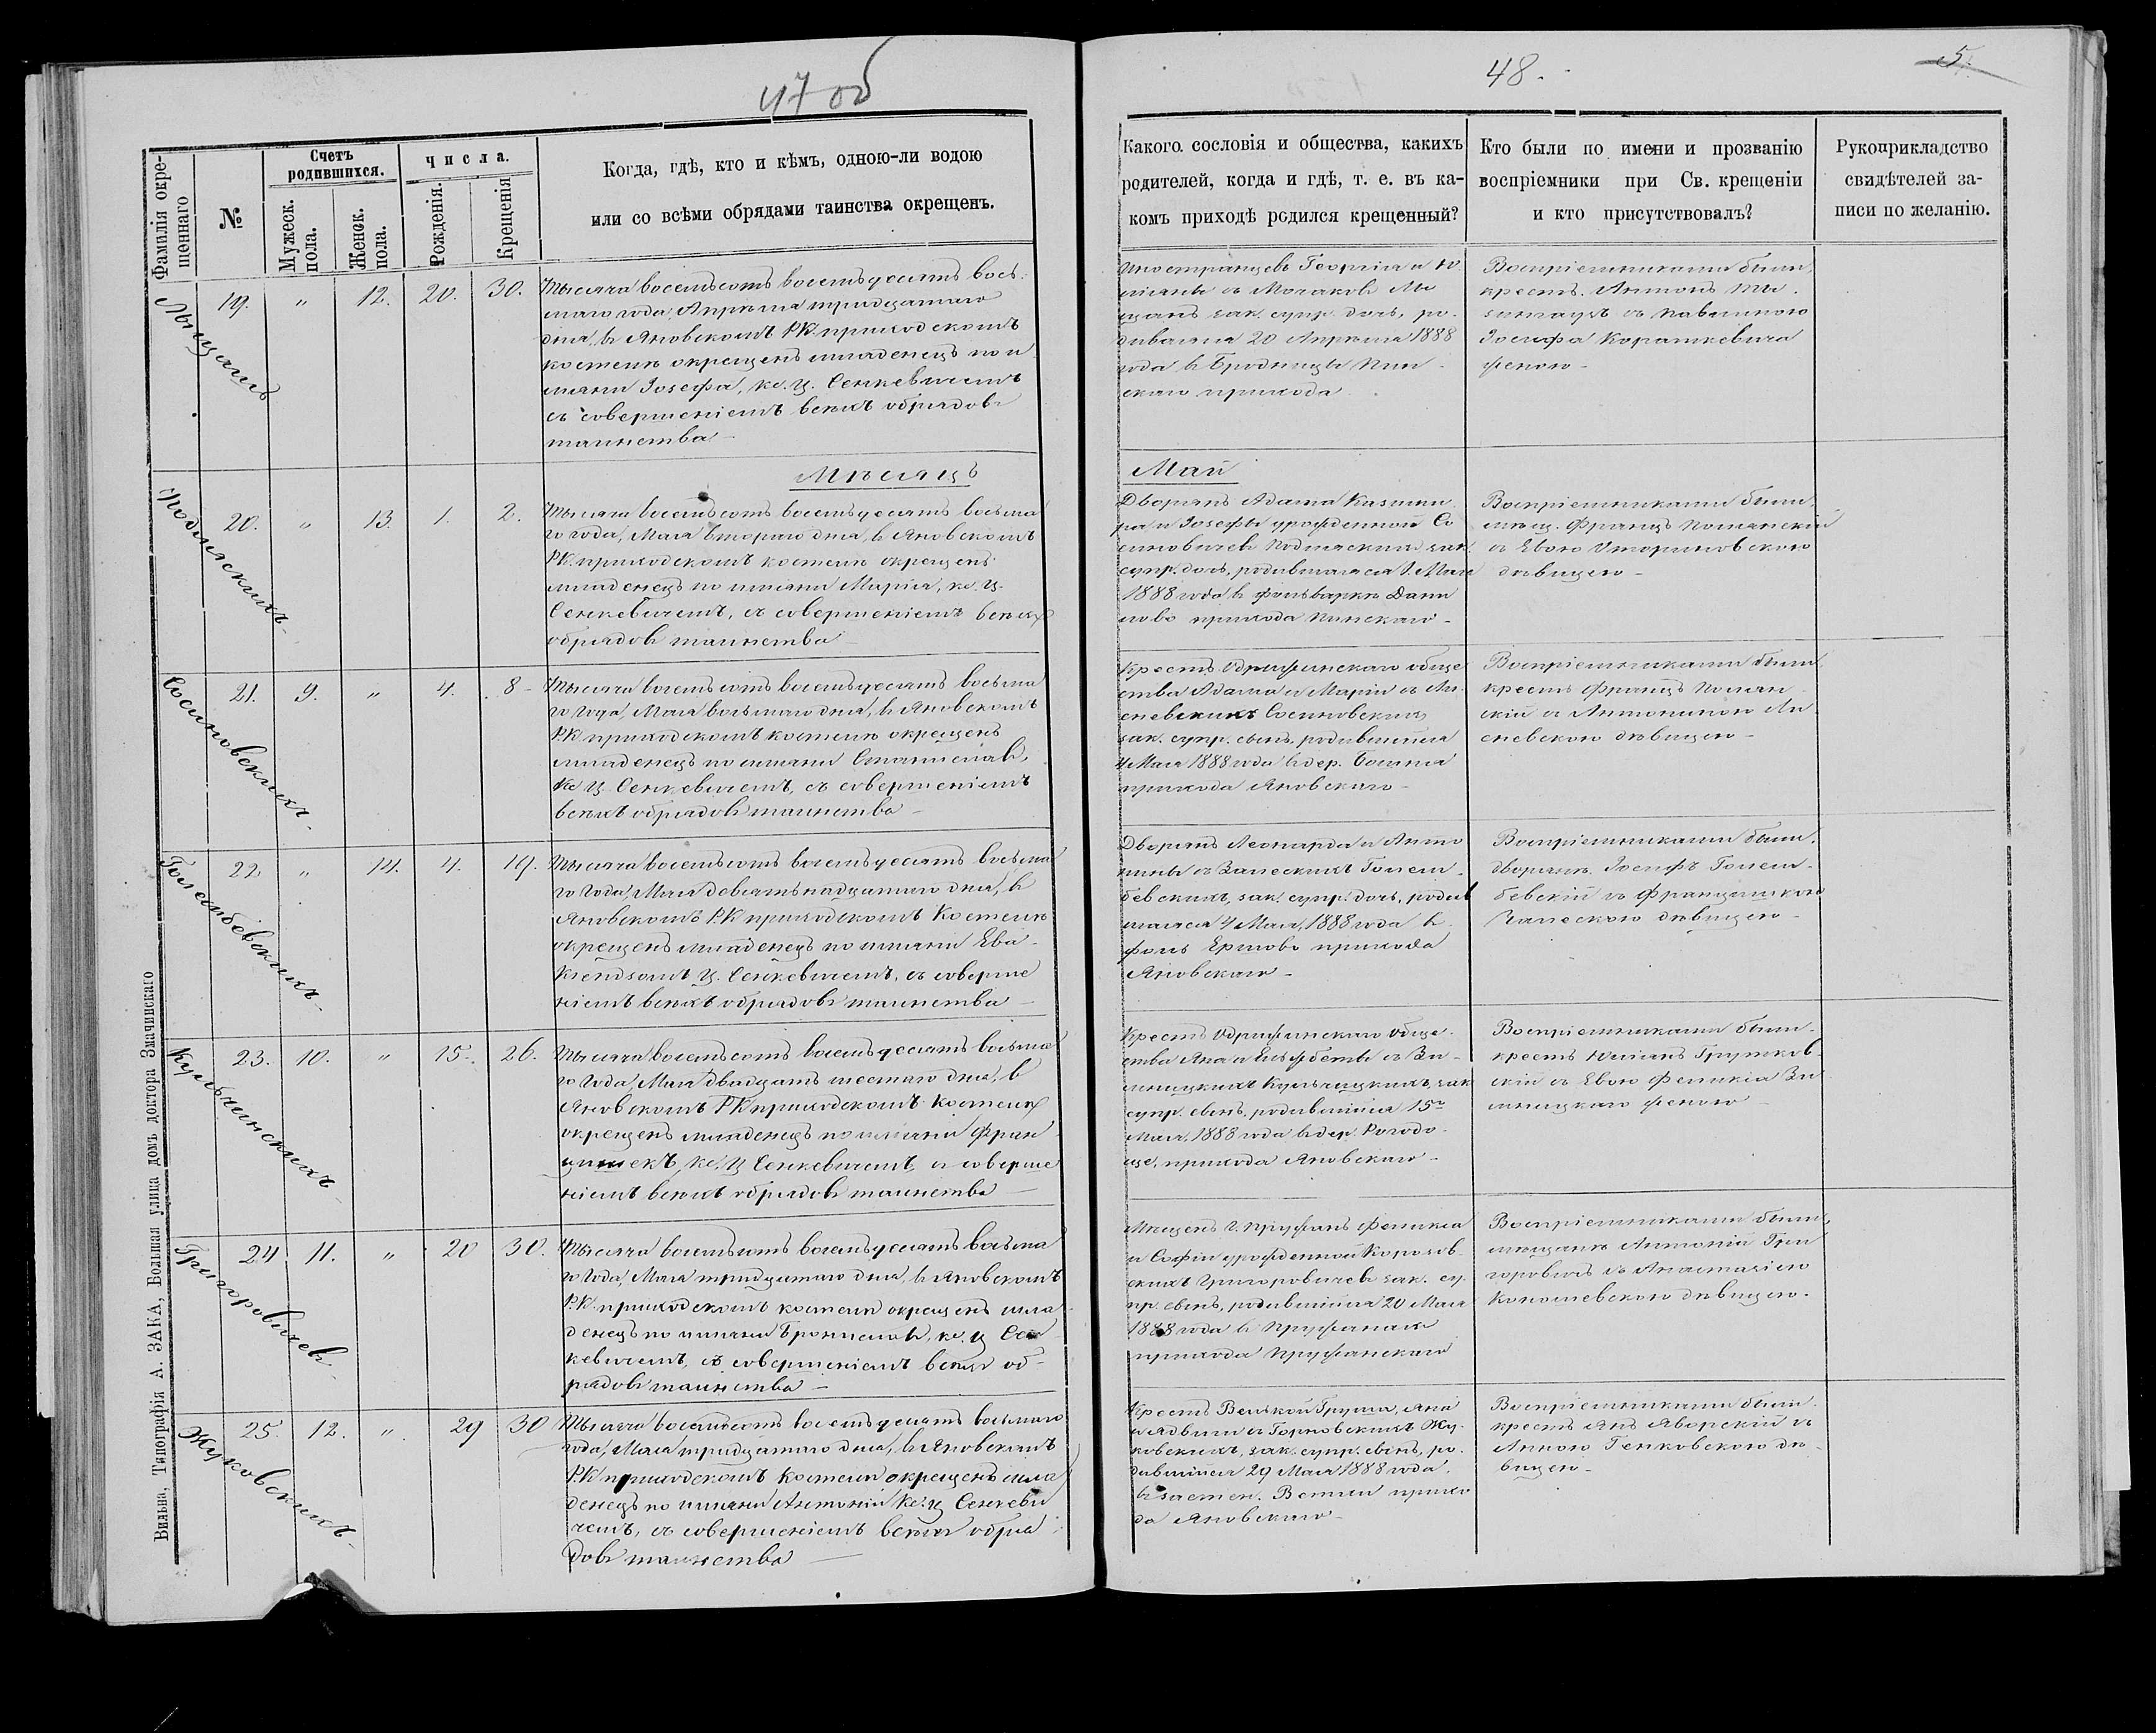 47 об
48.
5.
Фамилія окре-
щеннаго
№
Счетъ
родившихся.
Мужеск.
пола.
Женск.
пола.
Числа.
Рожденія.
Крещенія
Когда, гдѣ, кто и кѣмъ, одною-ли водою
или со всѣми обрядами таинства окрещенъ.
Какого сословія и общества, какихъ
родителей, когда и гдѣ, т. е. въ ка-
комъ приходѣ родился крещенный?
Кто были по имени и прозванію
воспріемники при Св. крещеніи
и кто присутствовалъ?
Рукоприкладство
свидѣтелей за-
писи по желанію.
19. " 12. 20. 30.
Тысяча восемьсотъ восемьдесятъ вось-
маго года, Апрѣля тридцатаго
дня, в Яновскомъ Р.К. приходскомъ
костелѣ окрещенъ младенецъ по и
мени Іозефа, кс. Ц. Сенкевичемъ
съ совершеніемъ всѣхъ обрядовъ
таинства
Иностранцевъ Георгія и Ю
ліяны съ
зак. супр. дочь, ро-
дившаяся 20 Апрѣля 1888
года в Бродницы Пин-
скаго прихода
Воспріемниками были,
крест. Антонъ
съ Павлиною
Іосифа Корашкевича
женою
Мѣсяцъ
Май
Подлясскихъ
20. " 13. 1. 2.
Тысяча восемьсотъ восемьдесятъ восьма
го года, Мая втораго дня, в Яновскомъ
Р.К. приходскомъ костелѣ окрещенъ
младенецъ по имени Марія, кс. Ц.
Сенкевичемъ, съ совершеніемъ всѣхъ
обрядовъ таинства
Дворянъ Адама Казими
ра и Іозефы урожденной Со
Подлясскихъ зак.
супр. дочь, родившаяся 1 Мая
1888 года в фольваркѣ Дани
лово прихода Пинскаго
Воспріемниками были,
мѣщ. Францъ Полянскій
съ Евою
дѣвицею
Сосиновскихъ
21. 9. " 4. 8
Тысяча восемьсотъ восемьдесятъ восьма
го года, Мая восьмаго дня, в Яновскомъ
Р.К. приходскомъ костелѣ окрещенъ
младенецъ по имени Станиславъ,
кс. Ц. Сенкевичемъ, съ совершеніемъ
всѣхъ обрядовъ таинства
Крест. Одрижинскаго обще
ства Адама и Маріи съ Ли-
сневскихъ Сосиновскихъ
зак. супр. сынъ, родившійся
4 Мая 1888 года в дер.
прихода Яновскаго
Воспріемниками были,
крест. Францъ Полян
скій съ Антониною Ли
сневскою дѣвицею
Голембевскихъ
22 " 14. 4. 19.
Тысяча восемьсотъ восемьдесятъ восьма
го года, Мая девятьнадцатаго дня, в
Яновскомъ Р.К приходскомъ Костелѣ
окрещенъ младенецъ по имени Ева
Ксендзомъ Ц. Сенкевичемъ, съ соверше
ніемъ всѣхъ обрядовъ таинства
Дворянъ Леонарда и Анто
нины съ Залескихъ Голем-
бевскихъ, зак. супр. дочь, родив
шаяся 4 Мая, 1888 года в
фол. Ермово прихода
Яновскаго
Воспріемниками были,
дворян. Іосифъ Голем-
бевскій съ Францишкою
Залескою дѣвицею
Кульчинскихъ
23. 10. " 15. 26.
Тысяча восемьсотъ восемьдесятъ восьма
го года, Мая двадцать шестаго дня, в
Яновскомъ Р.К приходскомъ костелѣ
окрещенъ младенецъ по имени Фран
цишекъ, кс. Ц. Сенкевичемъ съ соверше
ніемъ всѣхъ обрядовъ таинства
Крест. Одрижинскаго обще-
ства Яна и Елизбеты съ
зак
супр. сынъ, родившійся 15го
Мая, 1888 года в дер. Рогодо-
ще, прихода Яновскаго
Воспріемниками были
крест. Юліанъ Грушков
скій съ Евою Феликса
женою
Григоровичевъ
24. 11. " 20 30.
Тысяча восемьсотъ восемьдесятъ восьма
го года, Мая тридцатаго дня, в Яновскомъ
Р.К. приходскомъ костелѣ окрещенъ мла
денецъ по имени Брониславъ, кс. Ц Сен
кевичемъ, съ совершеніемъ всѣхъ об-
рядовъ таинства
Мѣщанъ г. Пружанъ Феликса
и Софіи урожденной Корозов
скихъ Григоровичевъ зак. су-
пр. сынъ, родившійся 20 Мая
1888 года в Пружанахъ
прихода Пружанскаго
Воспріемниками были,
мѣщанинъ Антоній Гри
горовичъ съ Анастазіею
дѣвицею.
Жуковскихъ
25. 12. " 29 30
Тысяча восемьсотъ восемьдесятъ восьмаго
года, Мая тридцатаго дня, в Яновскомъ
Р.К приходскомъ костелѣ окрещенъ мла
денецъ по имени Антоній кс. Ц Сенкеви
чемъ, съ совершеніемъ всѣхъ обря
довъ таинства
Крест. Яна
и Ядвиги съ Горновскихъ Жу-
ковскихъ, зак. супр. сынъ, ро-
дившійся 29 Мая 1888 года
в застен. прихо
да Яновскаго
Воспріемниками были
крест. Янъ Яворскій съ
Анною Генковскою дѣ-
вицею
Вильна, Типографія А. ЗАКА, Большая улица домъ доктора Змачинскаго